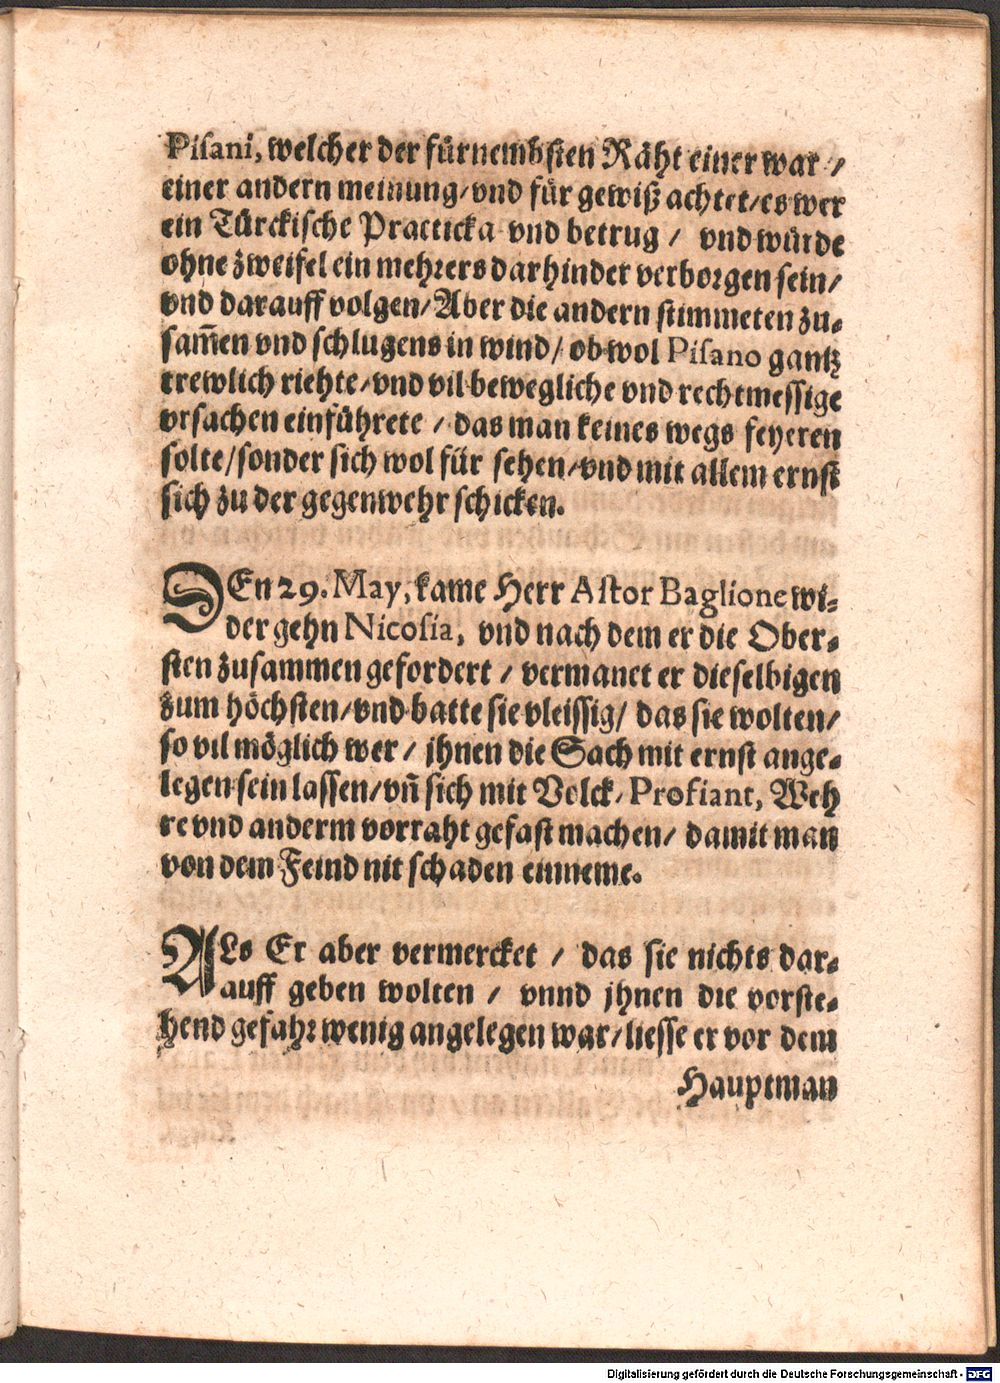 Pisani, welcher der fürnembsten Räht einer war /
einer andern meinung/vnd für gewiß achtet/es wer
ein Türckische Practicka vnd betrug / vnd würde
ohne zweifel ein mehrers darhinder verborgen sein/
vnd darauff volgen/Aber die andern stimmeten zu-
sam̃en vnd schlugens in wind/ ob wol Pisano gantz
trewlich riehte/vnd vil bewegliche vnd rechtmessige
vrsachen einführete / das man keines wegs feyeren
solte/sonder sich wol für sehen/vnd mit allem ernst
sich zu der gegenwehr schicken.
DEn 29. May, kame Herr Astor Baglione wi-
der gehn Nicosia, vnd nach dem er die Ober-
sten zusammen gefordert / vermanet er dieselbigen
zum höchsten/vnd batte sie vleissig/ das sie wolten/
so vil möglich wer / jhnen die Sach mit ernst ange-
legen sein lassen/vñ sich mit Volck, Profiant, Weh
re vnd anderm vorraht gefast machen/ damit man
von dem Feind nit schaden einneme.
ALs Er aber vermercket / das sie nichts dar-
auff geben wolten / vnnd jhnen die vorste-
hend gefahr wenig angelegen war/liesse er vor dem
Hauptman
Digitalisierung gefördert durch die Deutsche Forschungsgemeinschaft - DFG